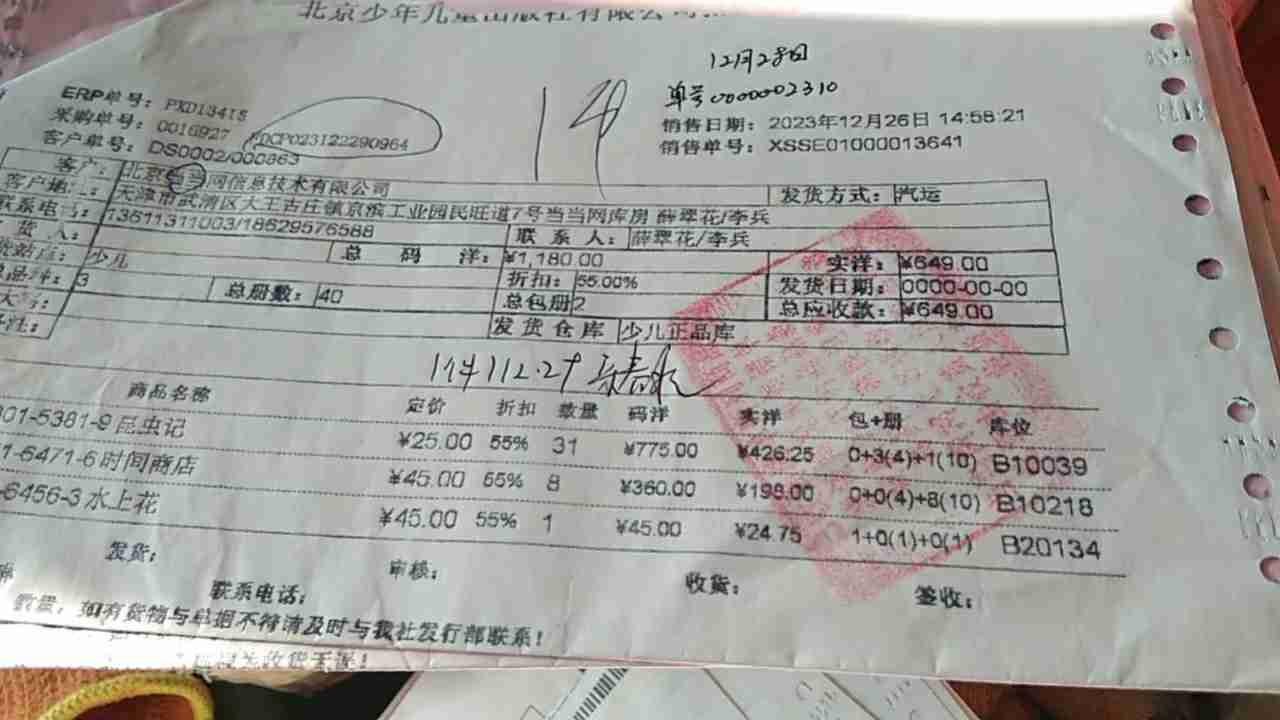 北京少年儿童出版社有限公司
12月28日
单号0000002310
1件
ERP单号：PXD13415
采购单号：0016927
PDCP023122290964
客户单号：DS0002/000863
销售日期：2023年12月26日 14:58:21
销售单号：XSSE01000013641
客户：北京当当网信息技术有限公司 发货方式：汽运
客户地址：天津市武清区大王古庄镇京滨工业园民旺道7号当当网库房 薛翠花/李兵
联系电话：13611311003/18629576588 联系人：薛翠花/李兵
货人： 总码洋：¥1,180.00 实洋：¥649.00
站店：少儿 折扣：55.00% 发货日期：0000-00-00
品种：3 总册数：40 总包册2 总应收款：¥649.00
注： 发货仓库 少儿正品库
1件 112.29
商品名称 定价 折扣 数量 码洋 实洋 包+册 库位
01-5381-9昆虫记 ¥25.00 55% 31 ¥775.00 ¥426.25 0+3(4)+1(10) B10039
1-6471-6时间商店 ¥45.00 55% 8 ¥360.00 ¥198.00 0+0(4)+8(10) B10218
-6456-3水上花 ¥45.00 55% 1 ¥45.00 ¥24.75 1+0(1)+0(1) B20134
发货： 审核： 收货： 签收：
联系电话：
数量：如有货物与单据不符请及时与我社发行部联系！